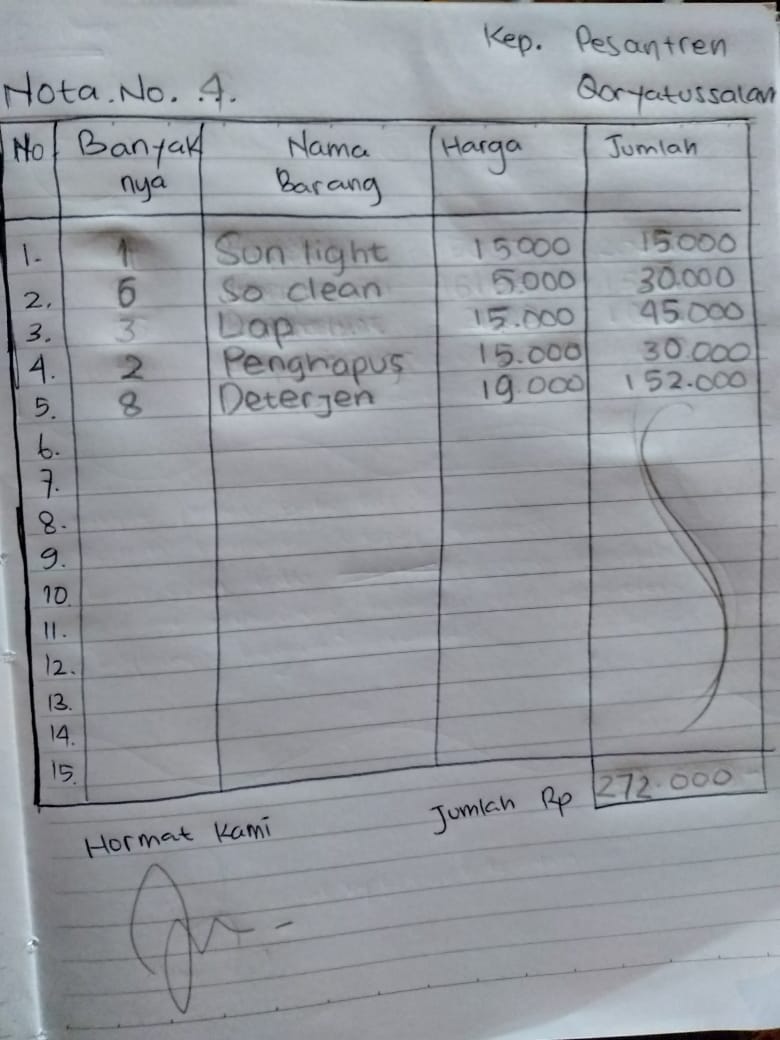 Kep. Pesantren
Nota.No. 4. Qoryatussalan
No Banyak nya Nama Barang Harga Jumlah
1. 1 Sun light 15000 15.000
2. 6 So clean 5.000 30.000
3. 3 Lap 15.000 45.000
4. 2 Penghapus 15.000 30.000
5. 8 Deterjen 19.000 152.000
6.
7.
8.
9.
10.
11.
12.
13.
14.
15.
Jumlah Rp 272.000
Hormat Kami